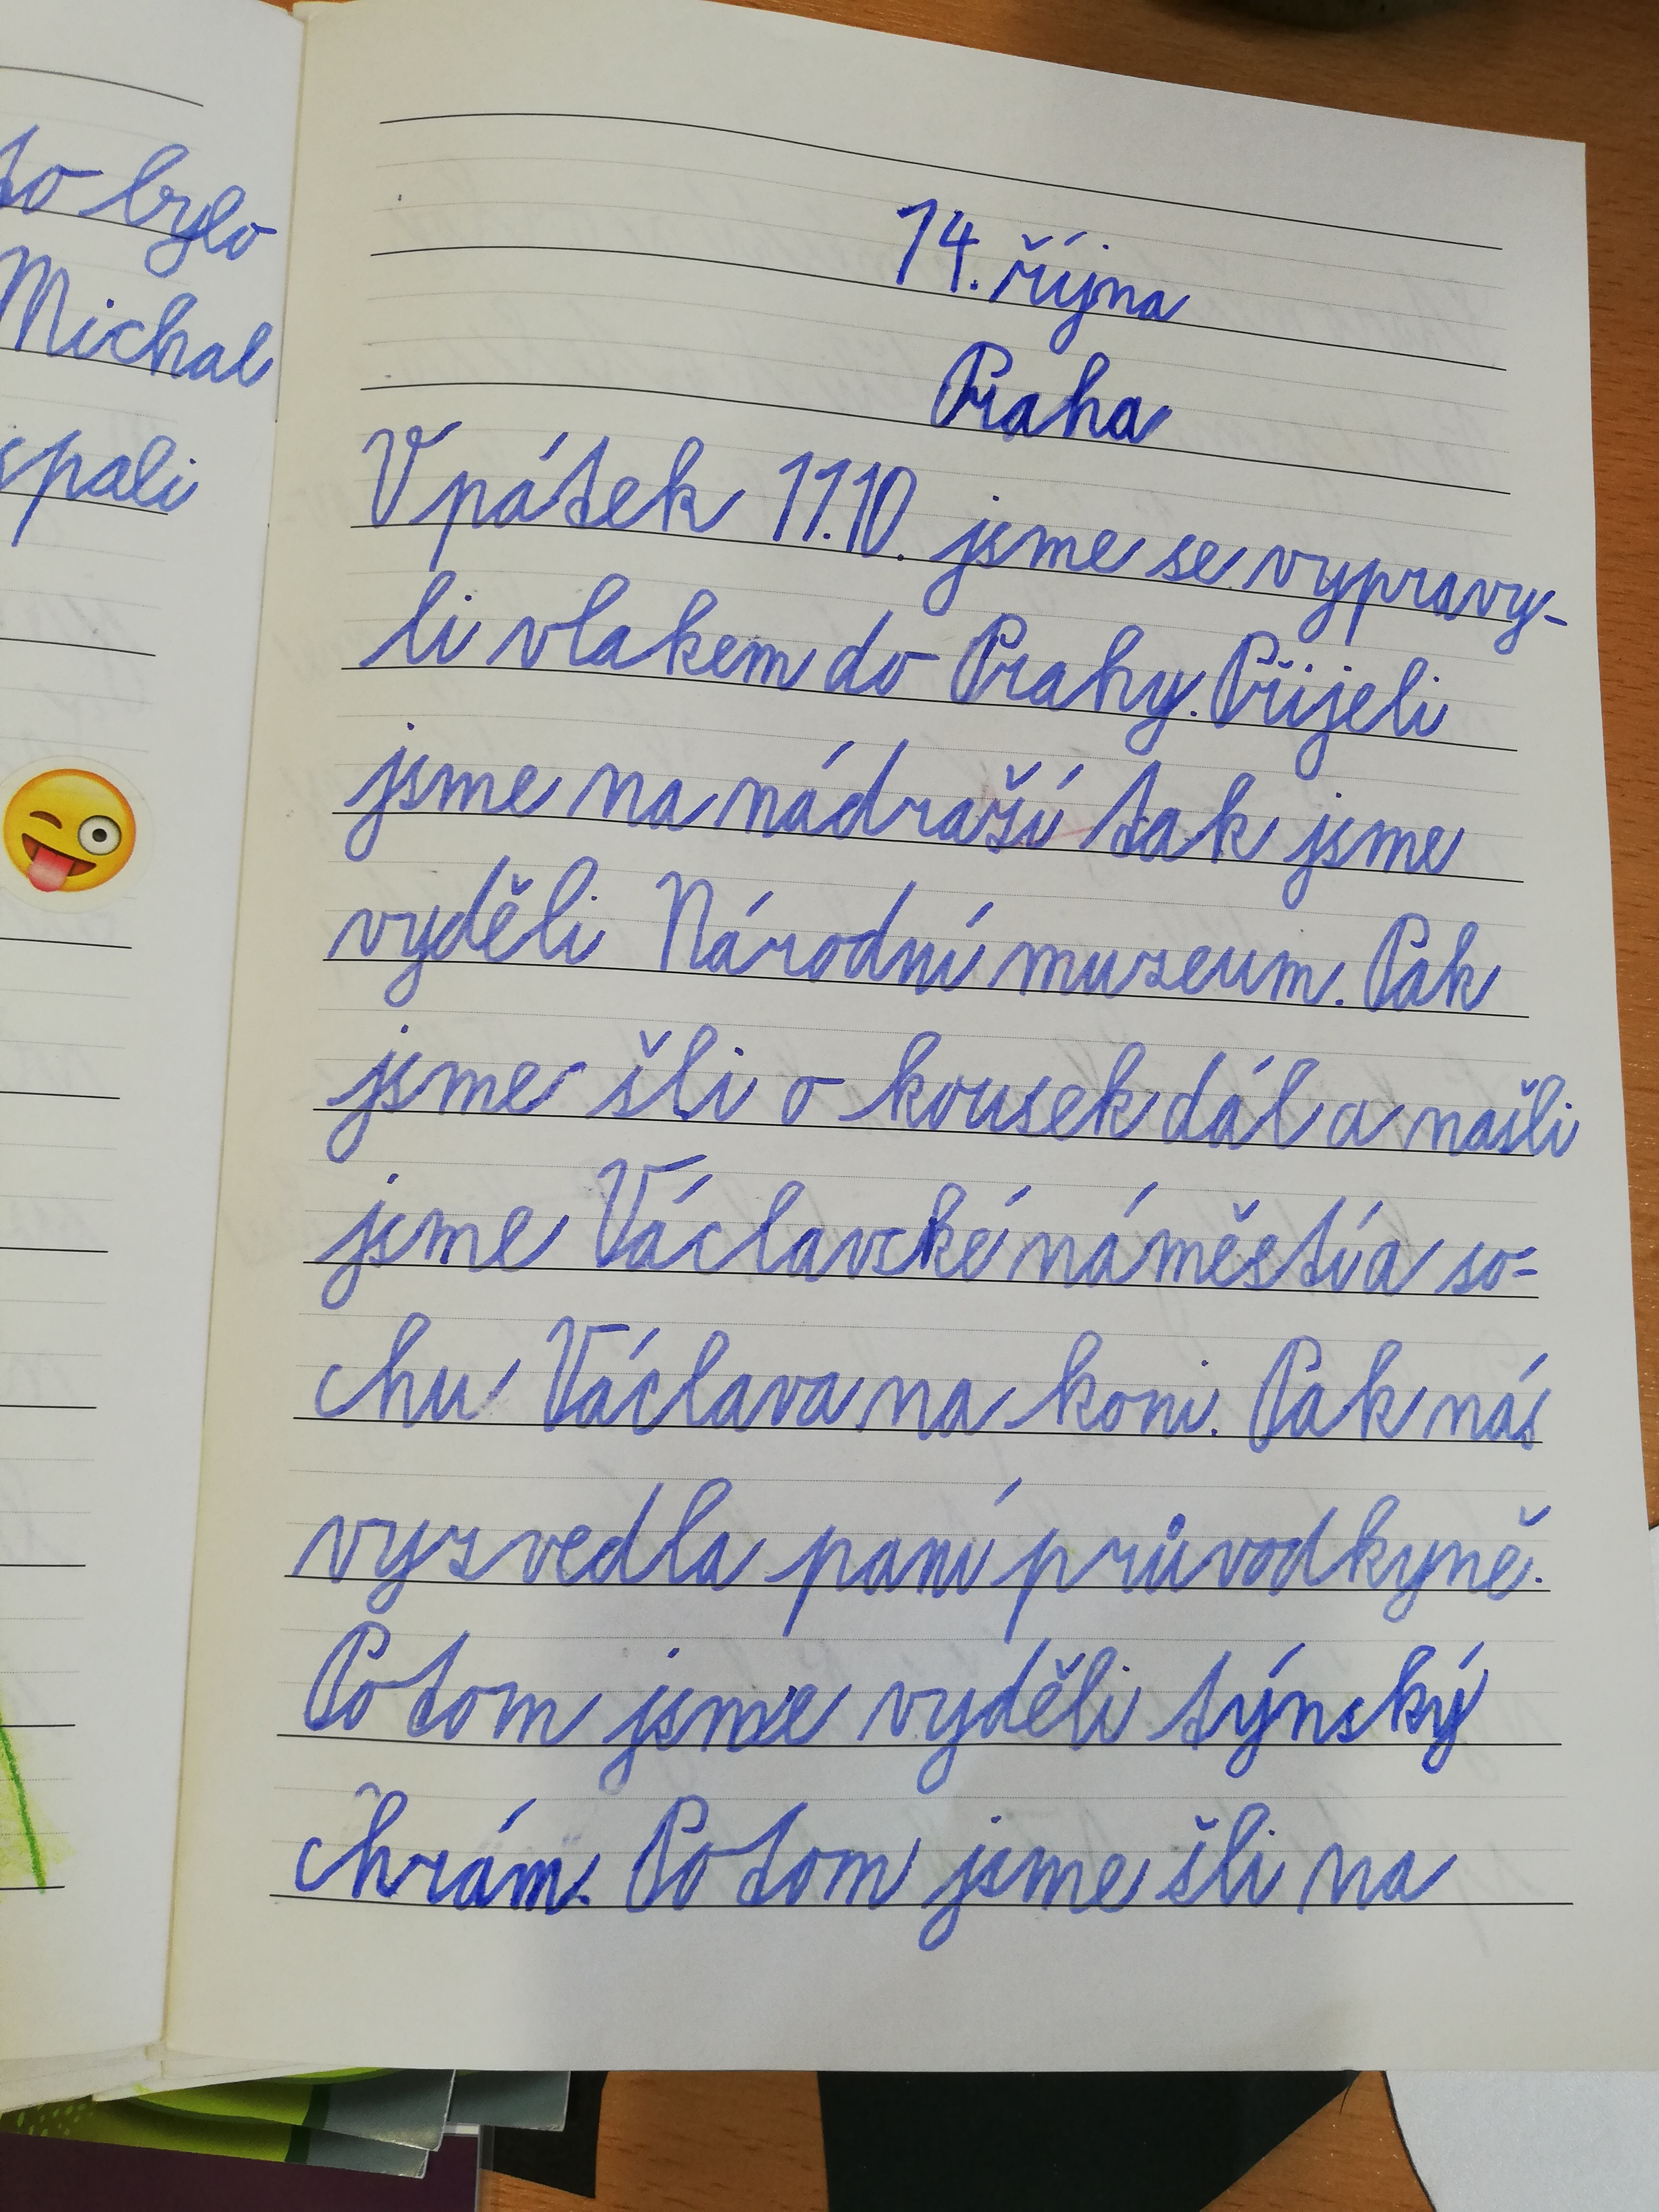 to bylo
Michal
spali
14. října
Praha
V pátek 11.10. jsme se vypravy-
li vlakem do Prahy. Přijeli
jsme na nádraží tak jsme
vyděli Národní muzeum. Pak
jsme šli o kousek dál a našli
jsme Václavské náměstí a so-
chu Václava na koni. Pak nás
vyzvedla paní průvodkyně.
Potom jsme vyděli týnský
chrám. Potom jsme šli na